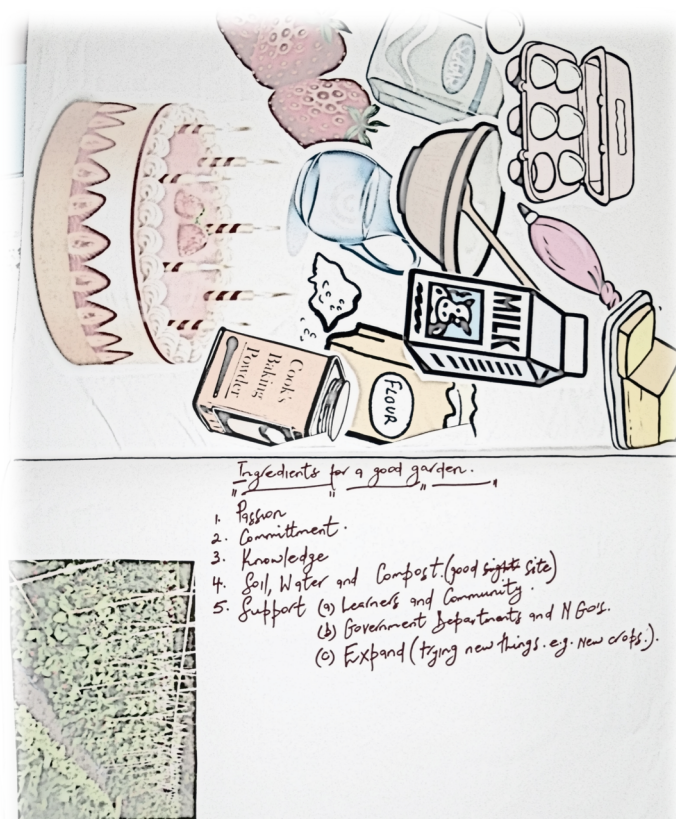 MILK
Cook's
Baking
Powder
FLOUR
Ingredients for a good garden.
1. Passion
2. Committment.
3. Knowledge
4. Soil, Water and Compost. (good sight site)
5. Support (a) Learners and Community.
(b) Government Departments and NGO's.
(c) Expand (trying new things. e.g. New crops.).